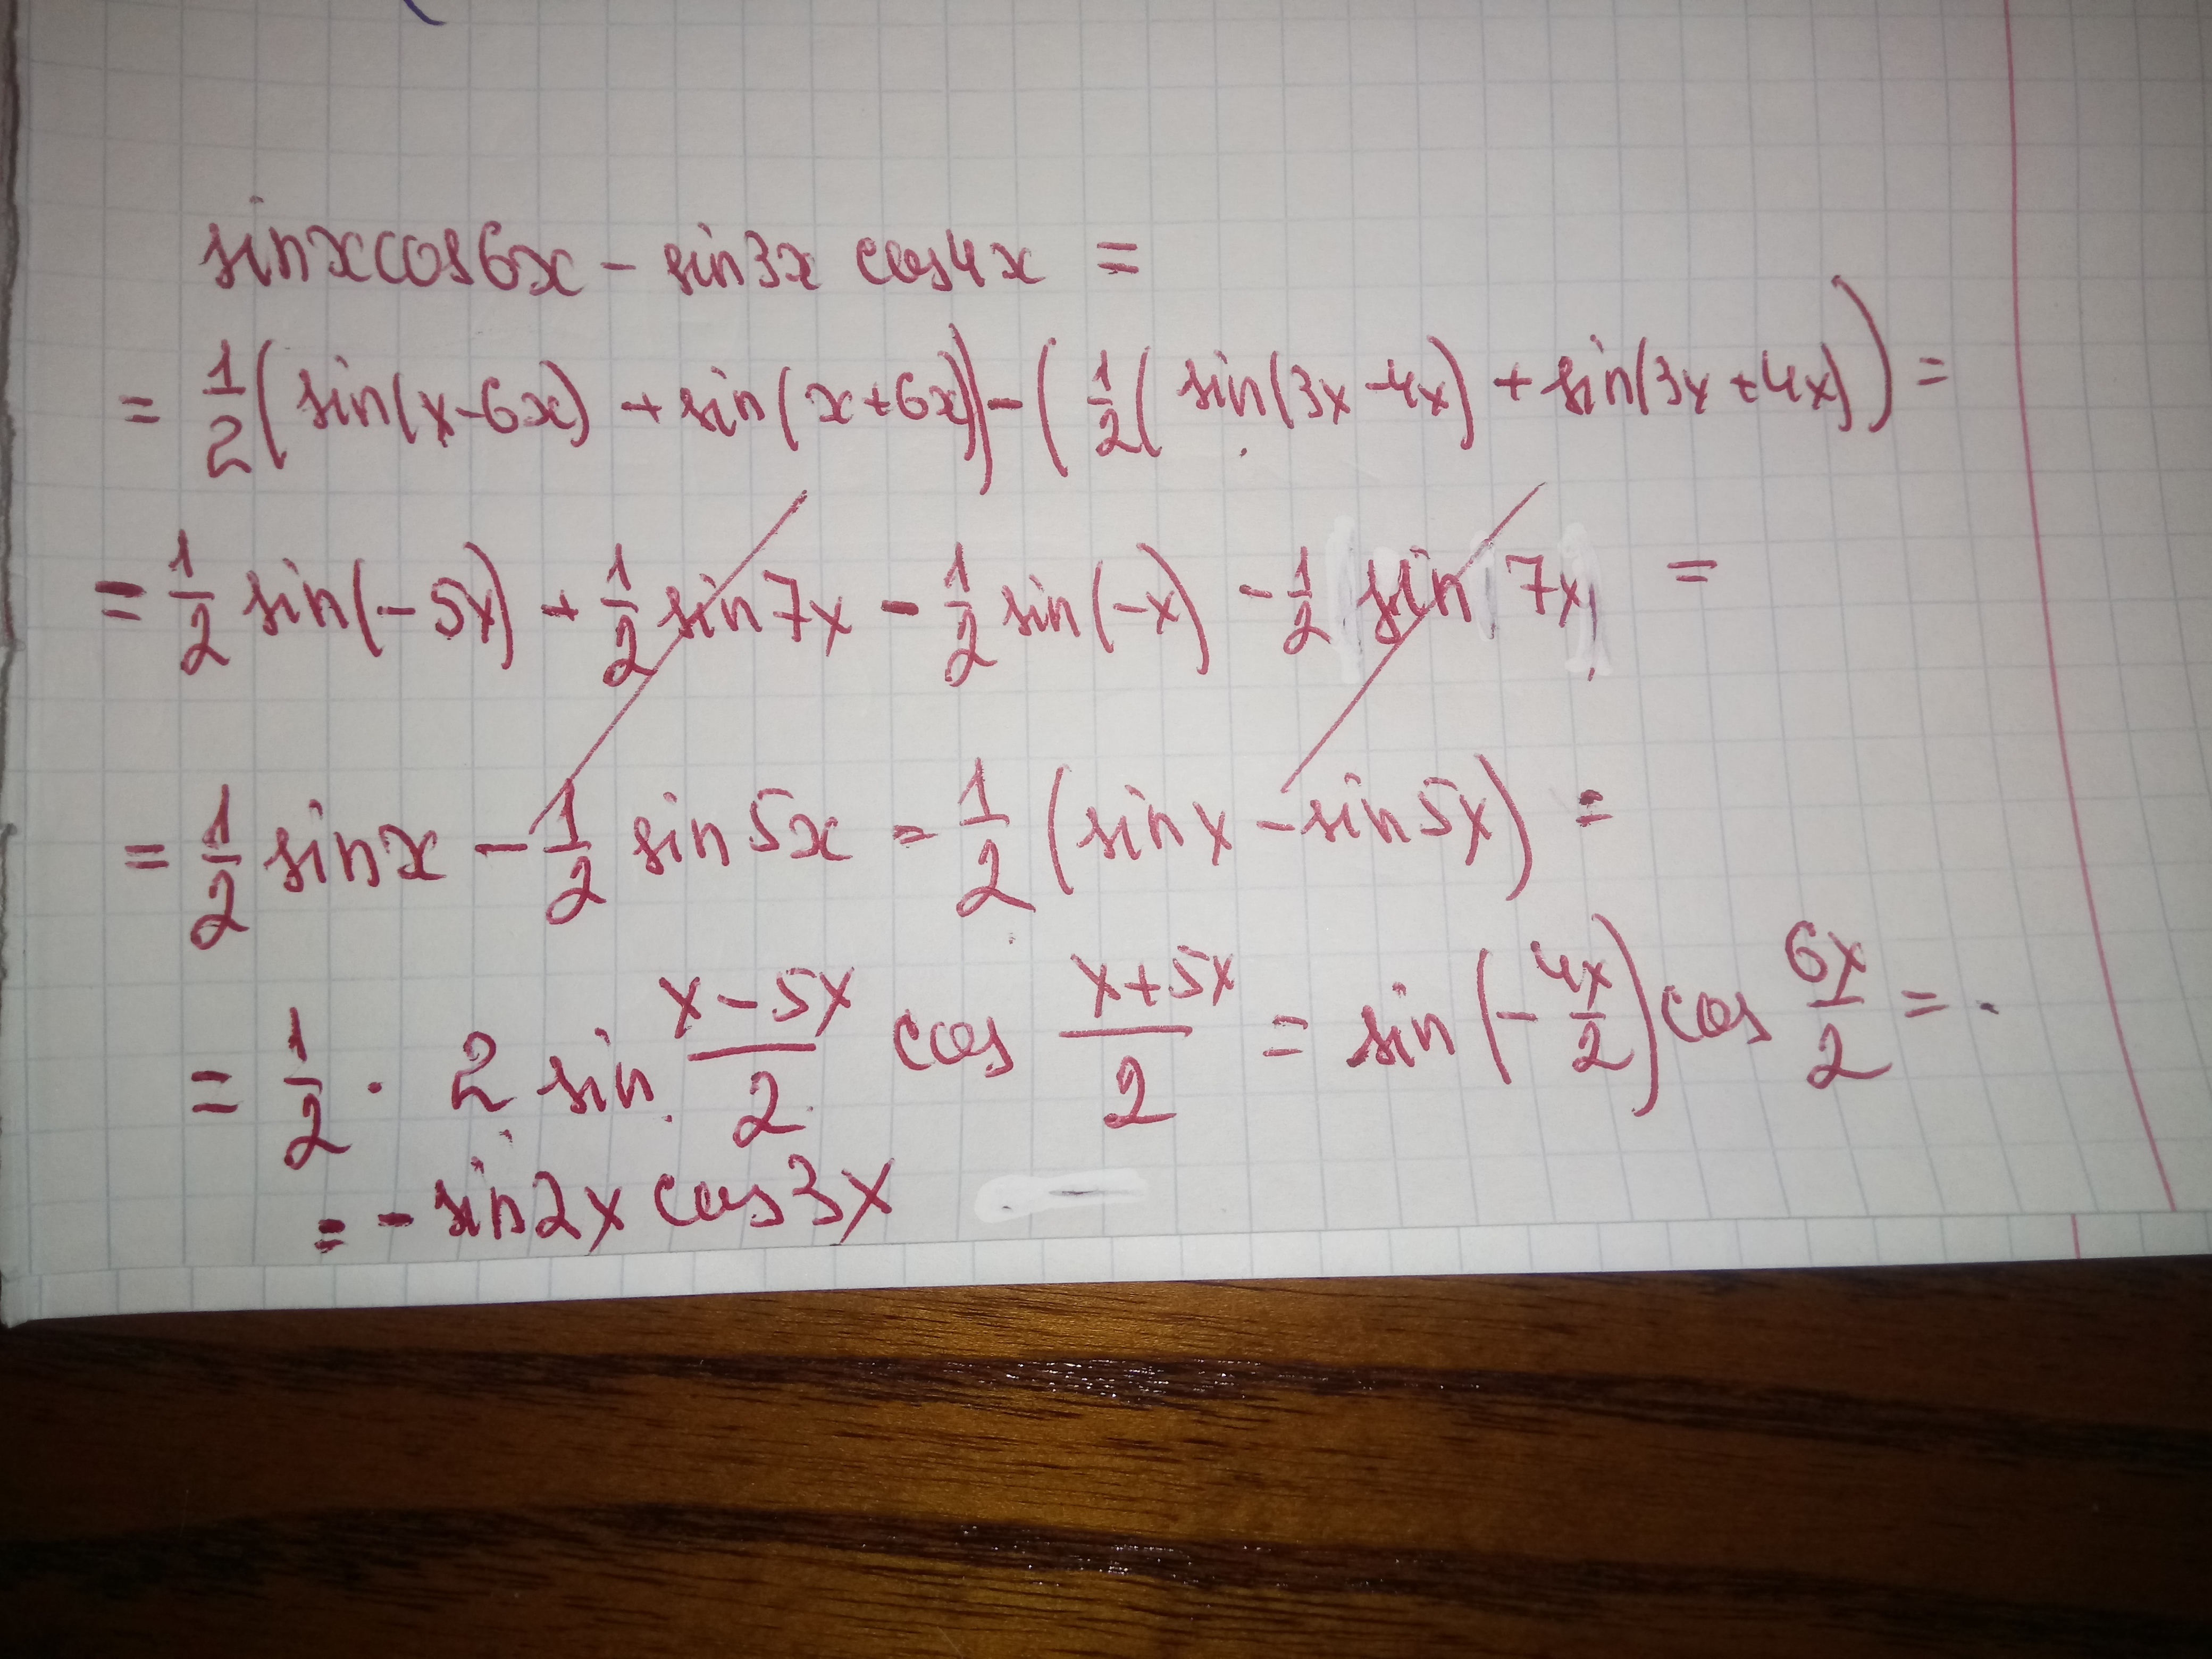 sinxcos6x - sin3x cos4x =
= 1/2 (sin(x-6x) + sin(x+6x)) - (1/2 (sin(3x-4x) + sin(3x+4x)) =
= 1/2 sin(-5x) + 1/2 sin7x - 1/2 sin(-x) - 1/2 sin 7x =
= 1/2 sinx - 1/2 sin5x = 1/2 (sinx - sin5x) =
= 1/2 · 2 sin (x-5x)/2 cos (x+5x)/2 = sin(- 4x/2) cos 6x/2 =
= - sin2x cos3x